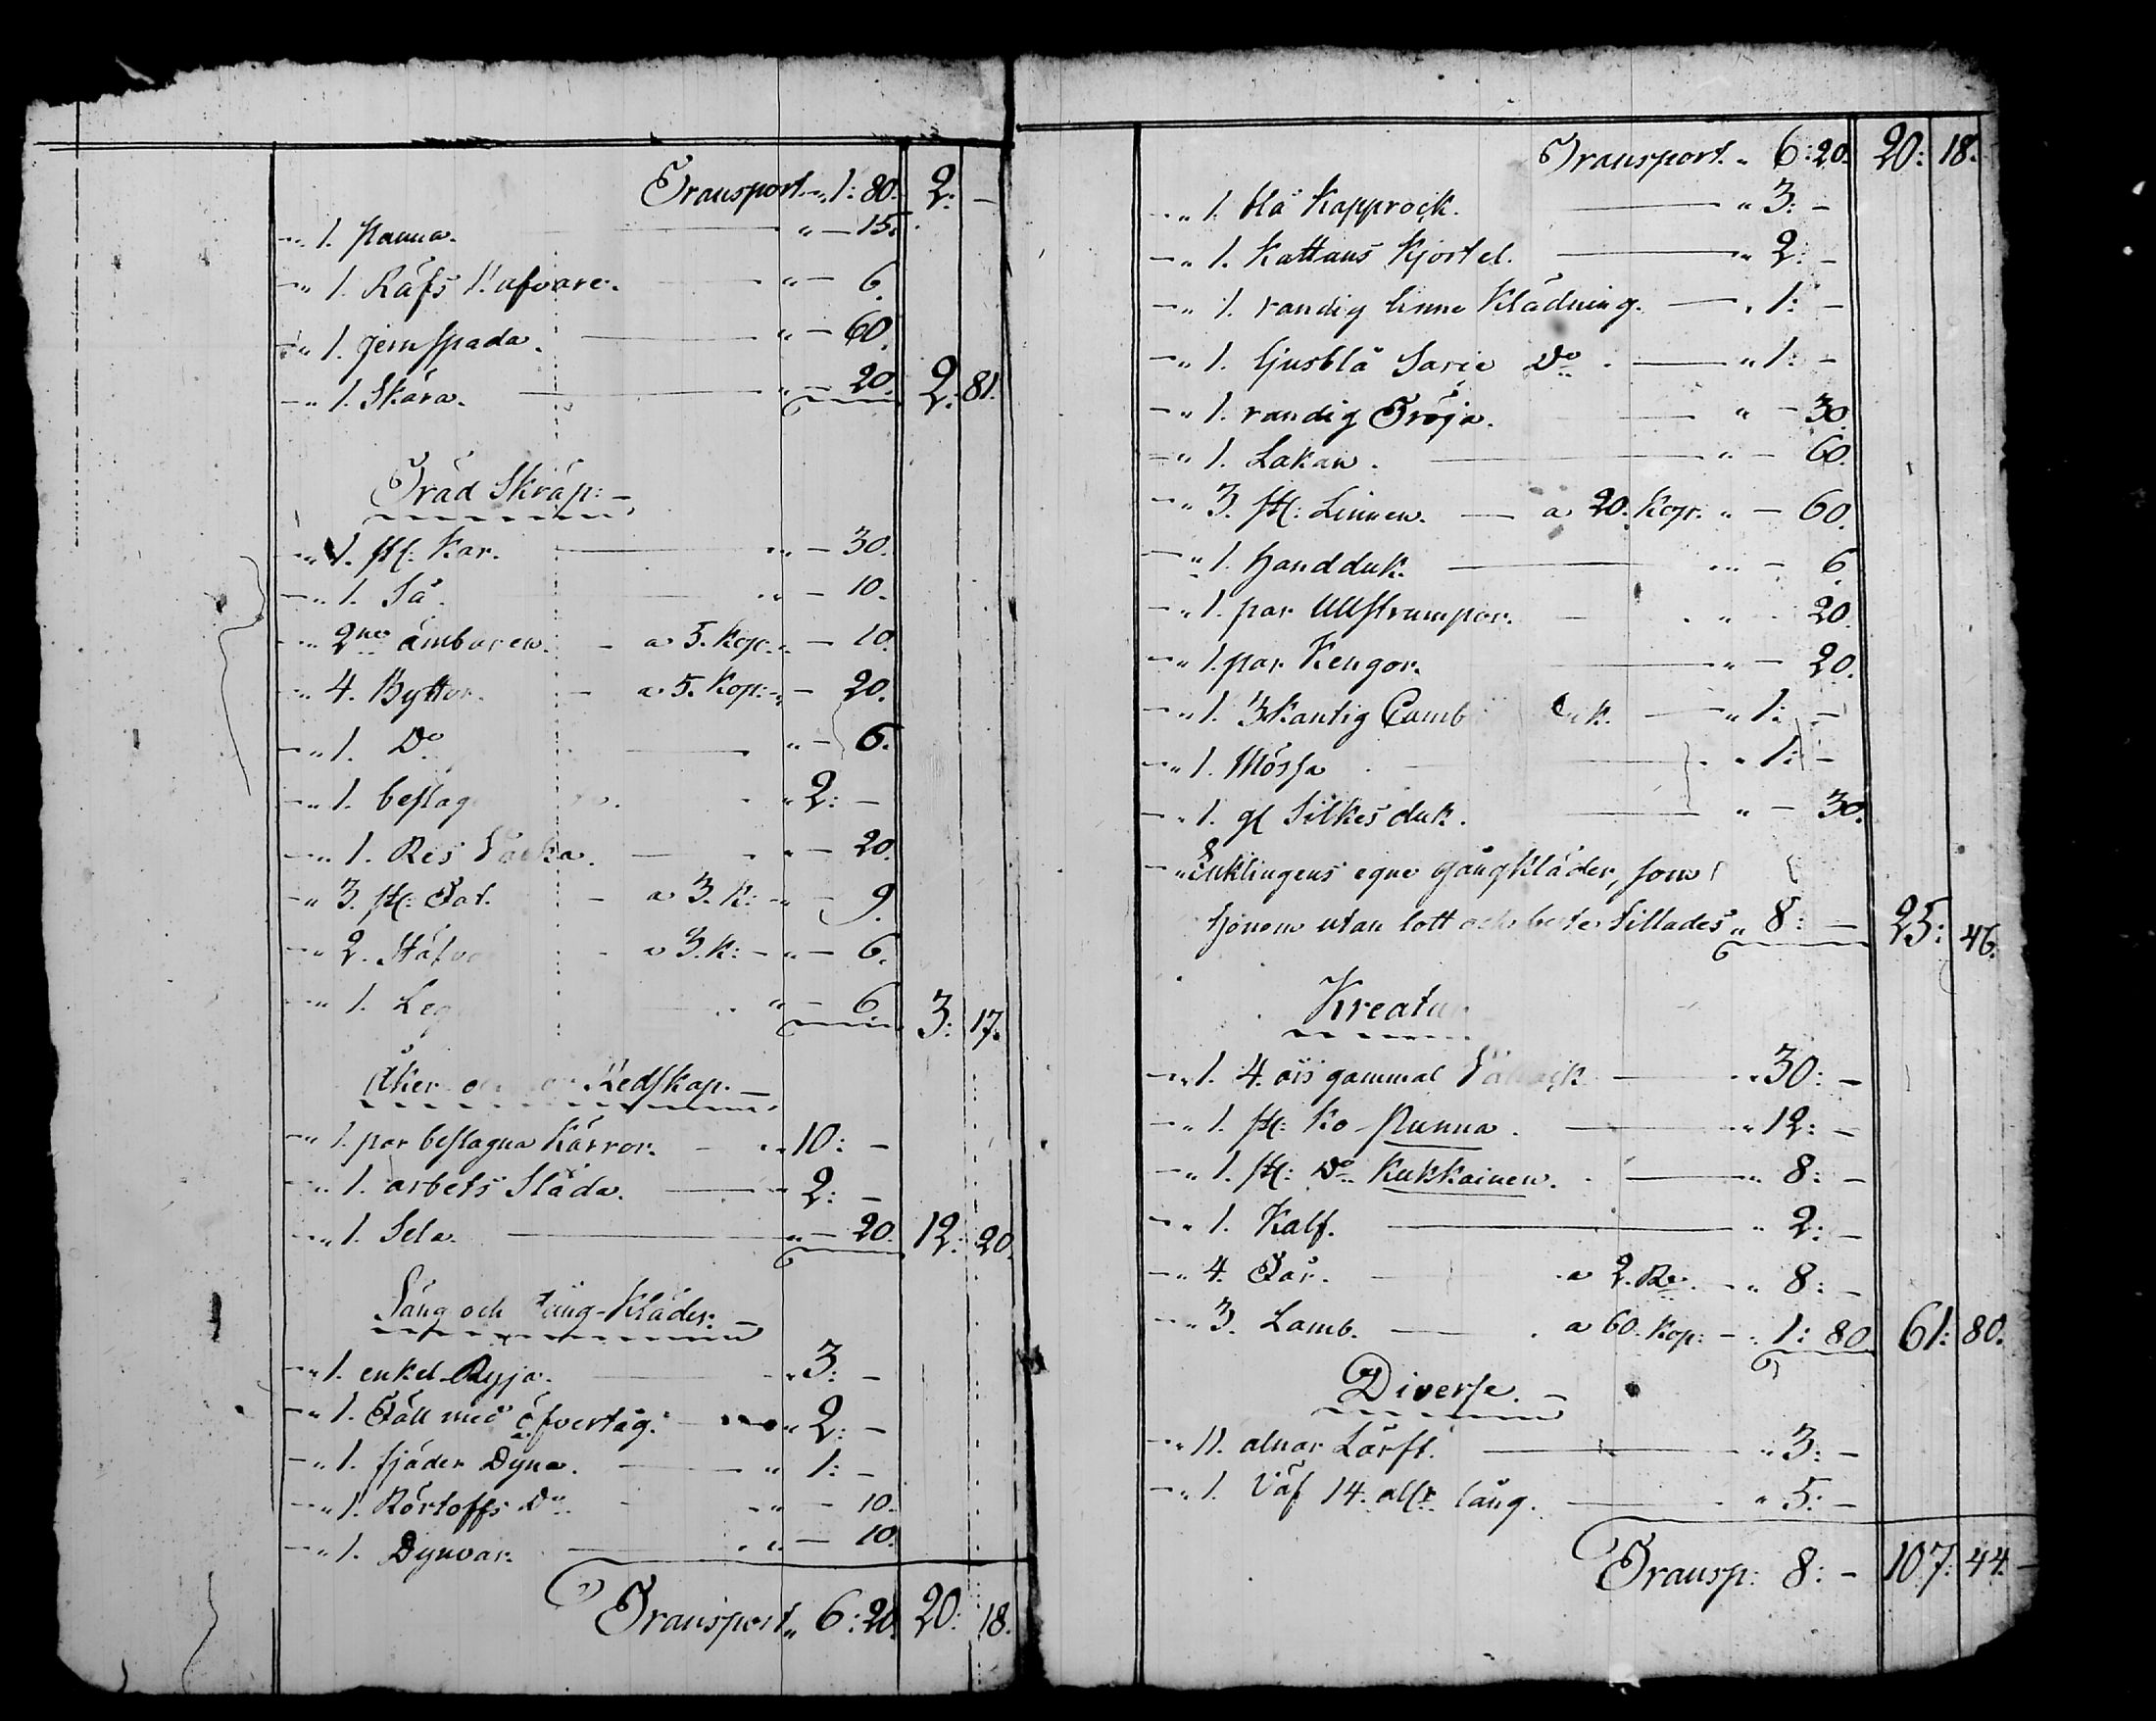 Transport „ 1: 80. 2: —
„ 1. Panna. „ — 15.
„ 1. Räfs „ — 6.
„ 1. jernspada. „ — 60.
„ 1. Skära. „ — 20. 2: 81.
Träd Skräp: —
„ 1. st: Kar. „ — 30.
„ 1. Så. „ — 10.
„ 2ne ämbaren. — a 5. Kop. „ — 10.
„ 4. Byttor. — a 5. Kop: „ — 20.
„ 1. Do „ — 6.
„ 1. beslag „ 2: —
„ 1. Res Säcka. „ — 20.
„ 3. st: Fat. — a 3. K: „ — 9.
„ 2. — a 3. K: — „ — 6.
„ 1. „ — 6. 3: 17.
Åker Redskap. —
„ 1. par beslagna Kärror. — „ 10: —
„ 1. arbets Släda. „ 2: —
„ 1. Sela. „ — 20. 12: 20.
Säng och Gång-Kläder: —
„ 1. enkel Ryja. „ 3: —
„ 1. Fäll med öfvertåg. „ 2: —
„ 1. fjäder Dyna. „ 1: —
„ 1. Rörtoffs Do „ — 10.
„ 1. Dynvar. „ — 10.
Transport „ 6: 20. 20: 18.
Transport „ 6: 20. 20: 18.
„ 1. blå Kapprock. „ 3: —
„ 1. Kattuns Kjortel. „ 2: —
„ 1. randig linne Klädning. „ 1: —
„ 1. ljusblå Sarje Do „ 1: —
„ 1. randig Tröja. „ — 30.
„ 1. Lakan. „ — 60.
„ 3. st: Linnen. — a 20. Kop. „ — 60.
„ 1. Handduk. „ — 6.
„ 1. par Ullstrumpor. „ 20.
„ 1. par Kengor. „ — 20.
„ 1. 3kantig duk. „ 1: —
„ 1. Mössa „ 1: —
„ 1. gl Silkes duk. „ — 30.
„ Enklingens egne gångkläder, som
honom utan lott och byte tillades „ 8: — 25: 46.
Kreatur
„ 1. 4. års gammal Valack „ 30: —
„ 1. st: Ko Punna. „ 12: —
„ 1. st: Do Kukkainen. „ 8: —
„ 1. Kalf. „ 2: —
„ 4. Får. a 2. Ro. „ 8: —
„ 3. Lamb. — a 60. Kop: — „ 1: 80. 61: 80.
Diverse. —
„ 11. alnar Lärft. „ 3: —
„ 1. Väf 14. alnr lång. „ 5: —
Transp: 8: — 107: 44. —